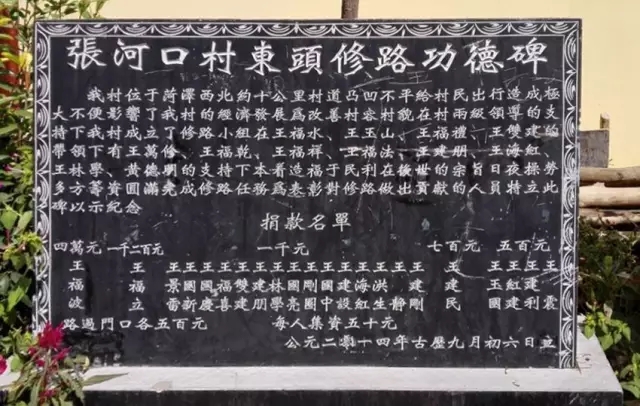 張河口村東頭修路功德碑
我村位于菏澤西北約十公里村道凸凹不平給村民出行造成極
大不便影響了我村的經濟發展爲改善村容村貌在村兩級領導的支
持下我村成立了修路小組在王福水、王玉山、王福禮、王雙建的
帶領下有王萬修、王福乾、王福祥、王福法、王建册、王海紅、
王林學、黄德明的支持下本着造福于民利在後世的宗旨日夜操勞
多方籌資圓滿完成修路任務爲表彰對修路做出貢獻的人員特立此
碑以示紀念
捐款名單
四萬元 一千二百元 一千元 七百元 五百元
王 王 王王王王王王王王王王王王王王王 王 王王王王
福 福 景國國福雙建林國剛國建海洪 建 建 建玉紅建
波 立 雷新慶喜建朋學亮圈中設紅生静剛 民 國建利震
路過門口各五百元 每人集資五十元
公元二零一四年古歷九月初六日立